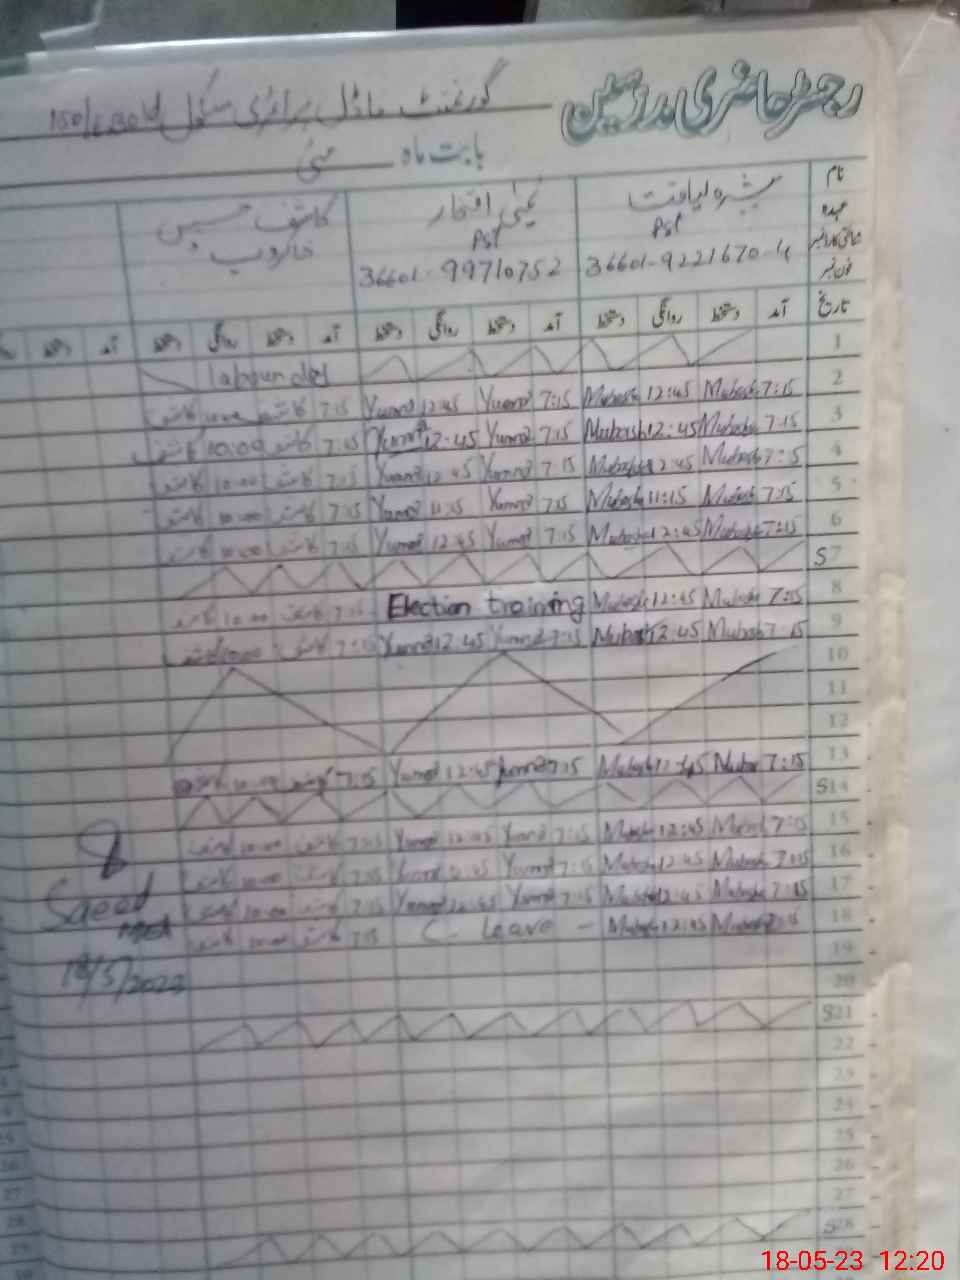 رجسٹر حاضری مدرسین
گورنمنٹ ماڈل پرائمری سکول
بابت ماہ مئی
نام
عہدہ
شناختی کارڈ نمبر
فون نمبر
مبشرہ لیاقت
Pst
36601-9221670-4
یمنیٰ افتخار
Pst
36601-99710752
کاشف
خاکروب
تاریخ آمد دستخط روانگی دستخط آمد دستخط روانگی دستخط آمد دستخط روانگی دستخط آمد دستخط
1 labour day
2 7:15 Mubash 12:45 Mubash 7:15 Yumna 12:45 Yumna 7:15 کاشف 10:00 کاشف
3 7:15 Mubash 12:45 Mubash 7:15 Yumna 12:45 Yumna 7:15 کاشف 10:00 کاشف
4 7:15 Mubash 12:45 Mubash 7:15 Yumna 12:45 Yumna 7:15 کاشف 10:00 کاشف
5 7:15 Mubash 11:15 Mubash 7:15 Yumna 11:15 Yumna 7:15 کاشف 10:00 کاشف
6 7:15 Mubash 12:45 Mubash 7:15 Yumna 12:45 Yumna 7:15 کاشف 10:00 کاشف
S7
8 7:15 Mubash 12:45 Mubash Election training 7:15 کاشف 10:00 کاشف
9 7:15 Mubash 12:45 Mubash 7:15 Yumna 12:45 Yumna 7:15 کاشف 10:00 کاشف
10
11
12
13 7:15 Mubash 12:45 Mubash 7:15 Yumna 12:45 Yumna 7:15 کاشف 10:00 کاشف
S14
15 7:15 Mubash 12:45 Mubash 7:15 Yumna 12:45 Yumna 7:15 کاشف 10:00 کاشف
16 7:15 Mubash 12:45 Mubash 7:15 Yumna 12:45 Yumna 7:15 کاشف 10:00 کاشف
17 7:15 Mubash 12:45 Mubash 7:15 Yumna 12:45 Yumna 7:15 کاشف 10:00 کاشف
18 7:15 Mubash 12:45 Mubash C. Leave - 7:15 کاشف 10:00 کاشف
Saeed
18/5/2023
19
20
S21
22
23
24
25
26
27
S28
29
18-05-23 12:20